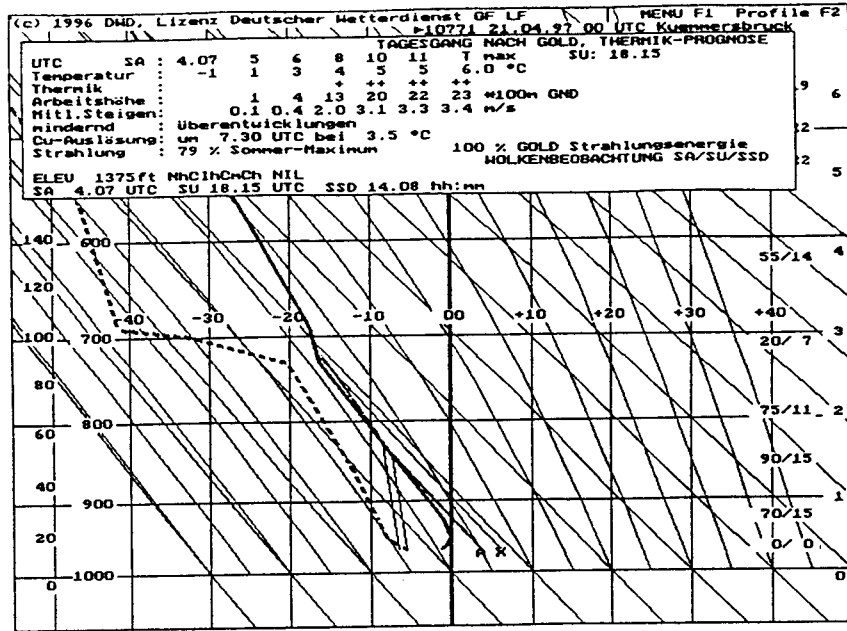 (c) 1996 DWD, Lizenz Deutscher Wetterdienst GF LF MENU F1 Profile F2
►10771 21.04.97 00 UTC Kuemmersbruck
TAGESGANG NACH GOLD, THERMIK-PROGNOSE
UTC SA : 4.07 5 6 8 10 11 T max SU: 18.15
Temperatur : -1 1 3 4 5 5 6.0 °C
Thermik : + ++ ++ ++
Arbeitshöhe : 1 4 13 20 22 23 *100m GND
Mitl.Steigen: 0.1 0.4 2.0 3.1 3.3 3.4 m/s
mindernd : Überentwicklungen
Cu-Auslösung: um 7.30 UTC bei 3.5 °C
Strahlung : 79 % Sommer-Maximum 100 % GOLD Strahlungsenergie
WOLKENBEOBACHTUNG SA/SU/SSD
ELEV 1375ft NhClhCmCh NIL
SA 4.07 UTC SU 18.15 UTC SSD 14.08 hh:mm
9 6
22
22 5
140 600 55/14 4
120
-40 -30 -20 -10 00 +10 +20 +30 +40
100 700 20/ 7 3
80
75/11 2
60 800
90/15
40 900 1
70/15
20 A X 0/ 0
1000 0
0 -20 -10 0